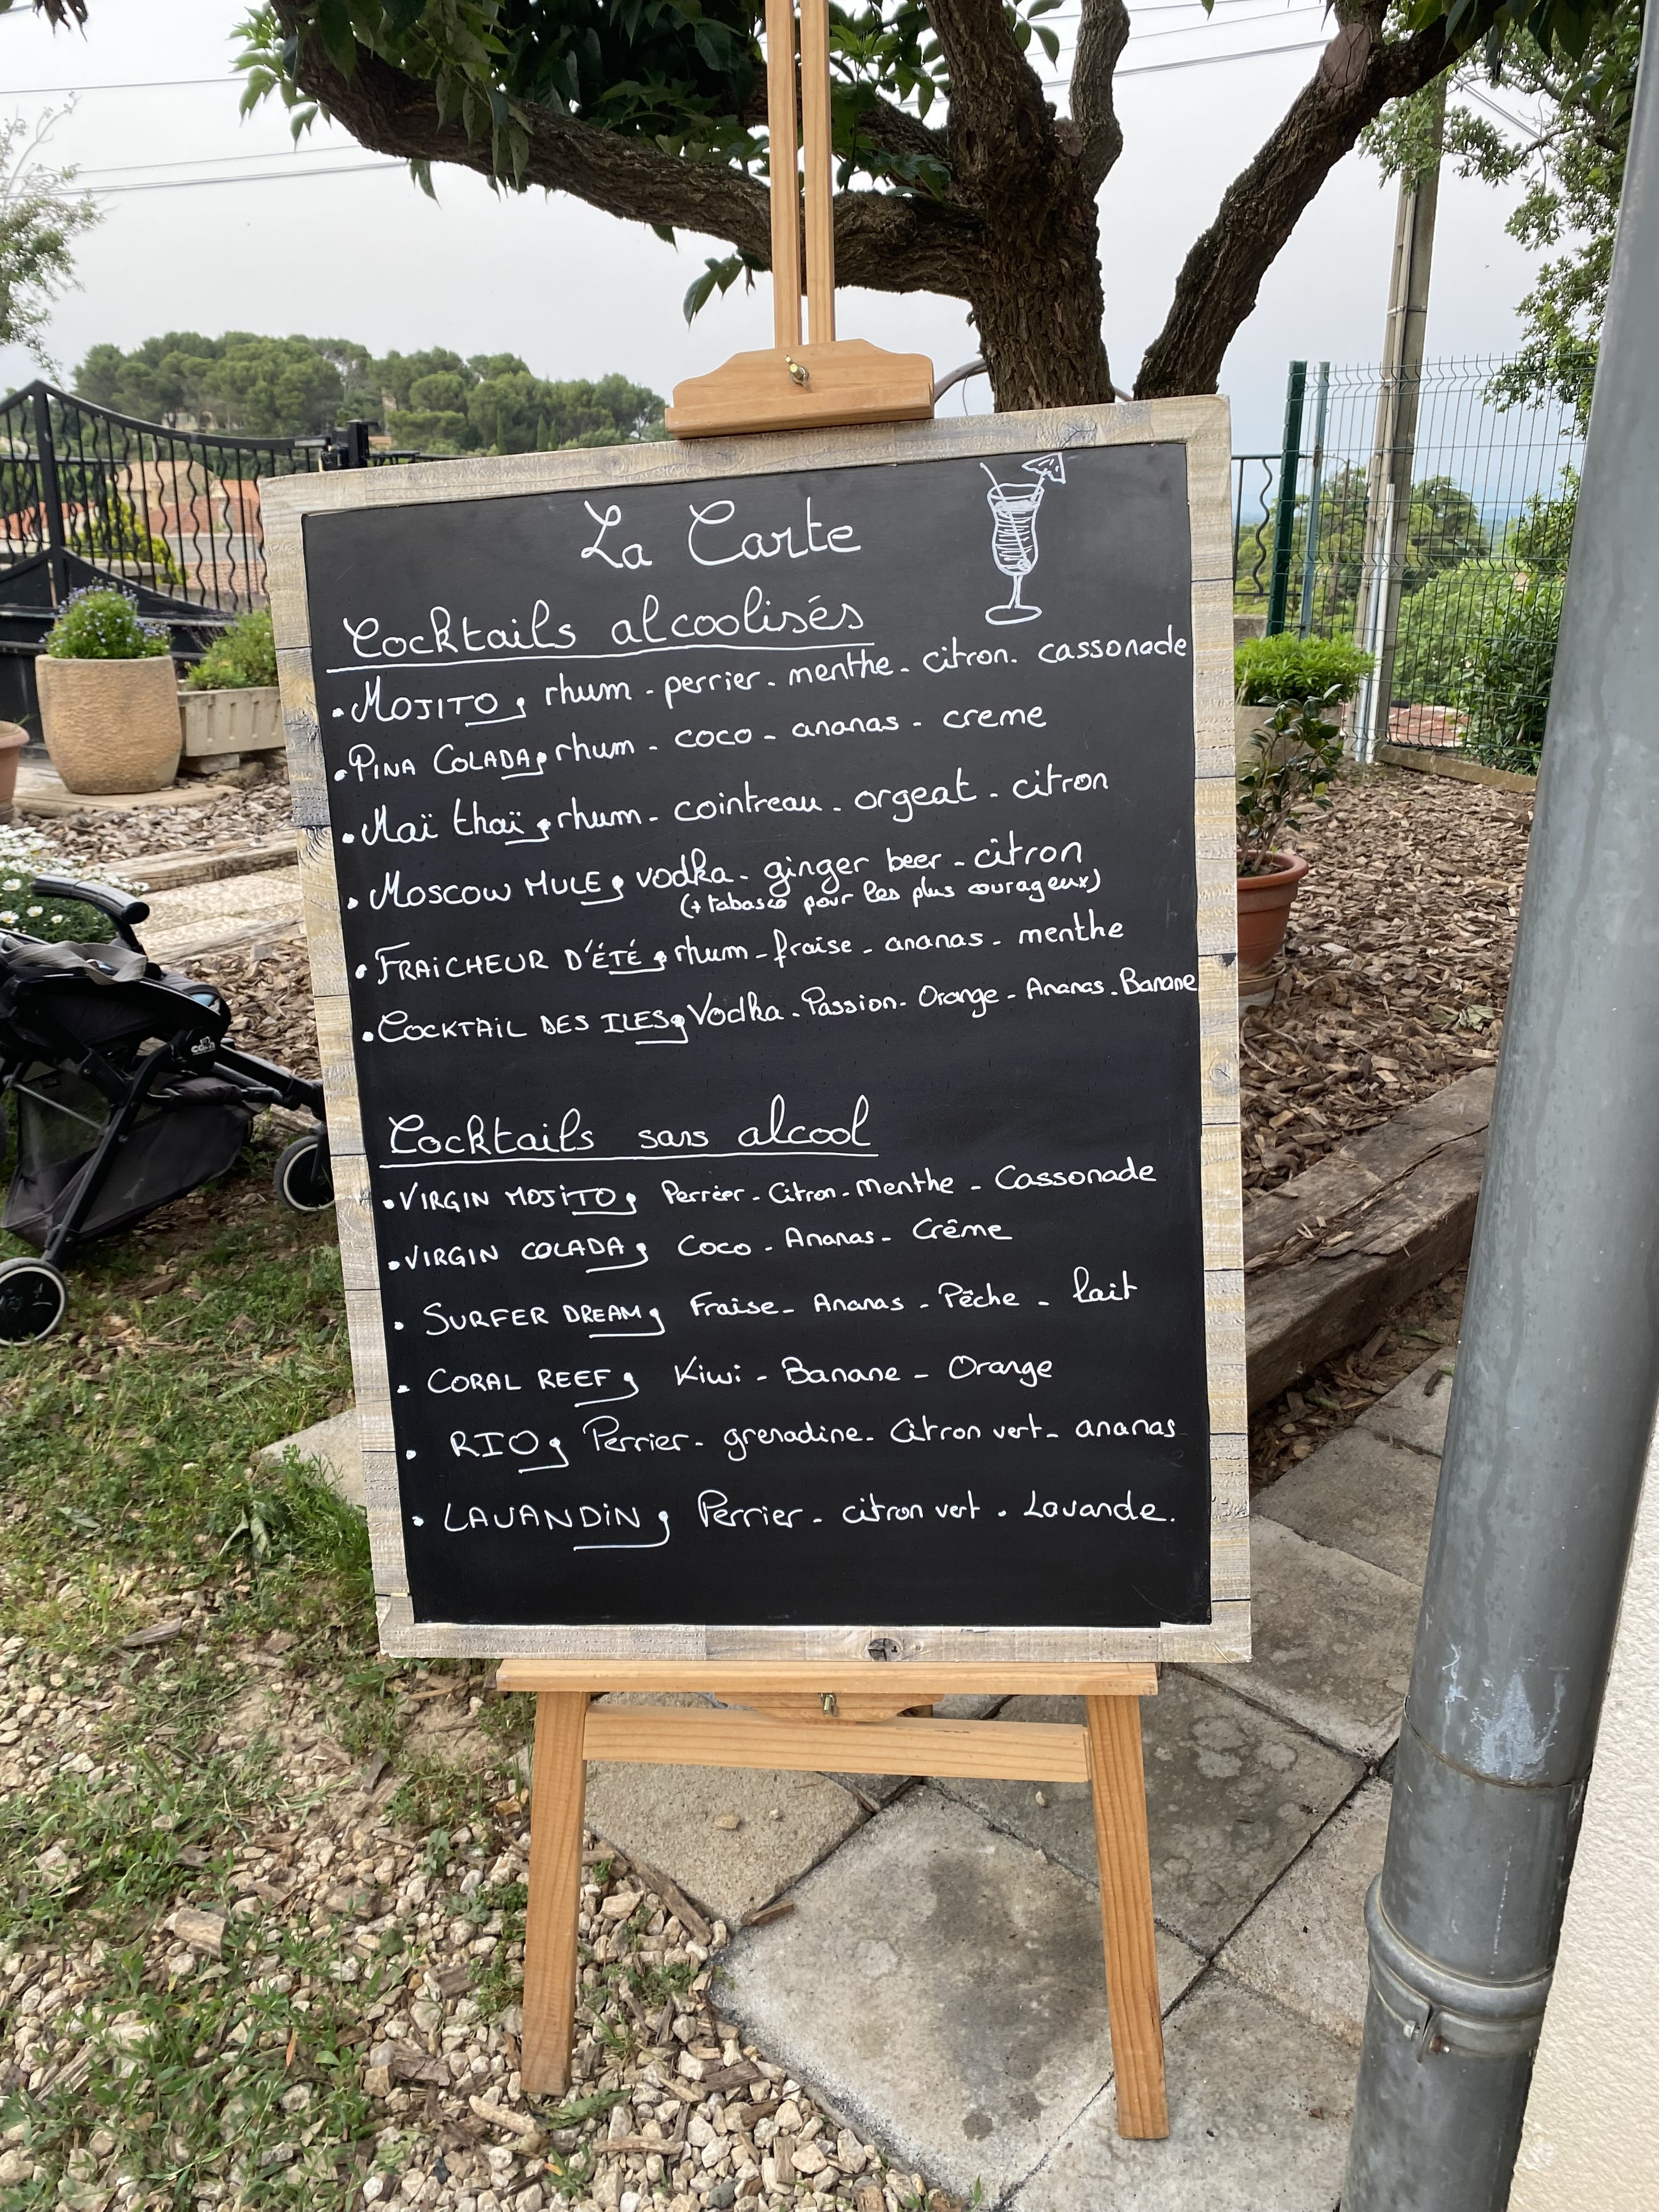 La Carte
Cocktails alcoolisés
• MOJITO, rhum - perrier - menthe - citron. cassonade
• PINA COLADA, rhum - coco - ananas - creme
• Maï thaï, rhum - cointreau - orgeat - citron
• MOSCOW MULE, vodka - ginger beer - citron
(+ tabasco pour les plus courageux)
• FRAiCHEUR D'ÉTÉ, rhum - fraise - ananas - menthe
• COCKTAiL DES ILES, Vodka - Passion - Orange - Ananas - Banane
Cocktails sans alcool
• VIRGIN MOJiTO, Perrier - Citron - Menthe - Cassonade
• VIRGIN COLADA, Coco - Ananas - Crême
• SURFER DREAM, Fraise - Ananas - Pêche - lait
• CORAL REEF, Kiwi - Banane - Orange
• RIO, Perrier - grenadine - Citron vert - ananas
• LAVANDiN, Perrier - citron vert - Lavande.